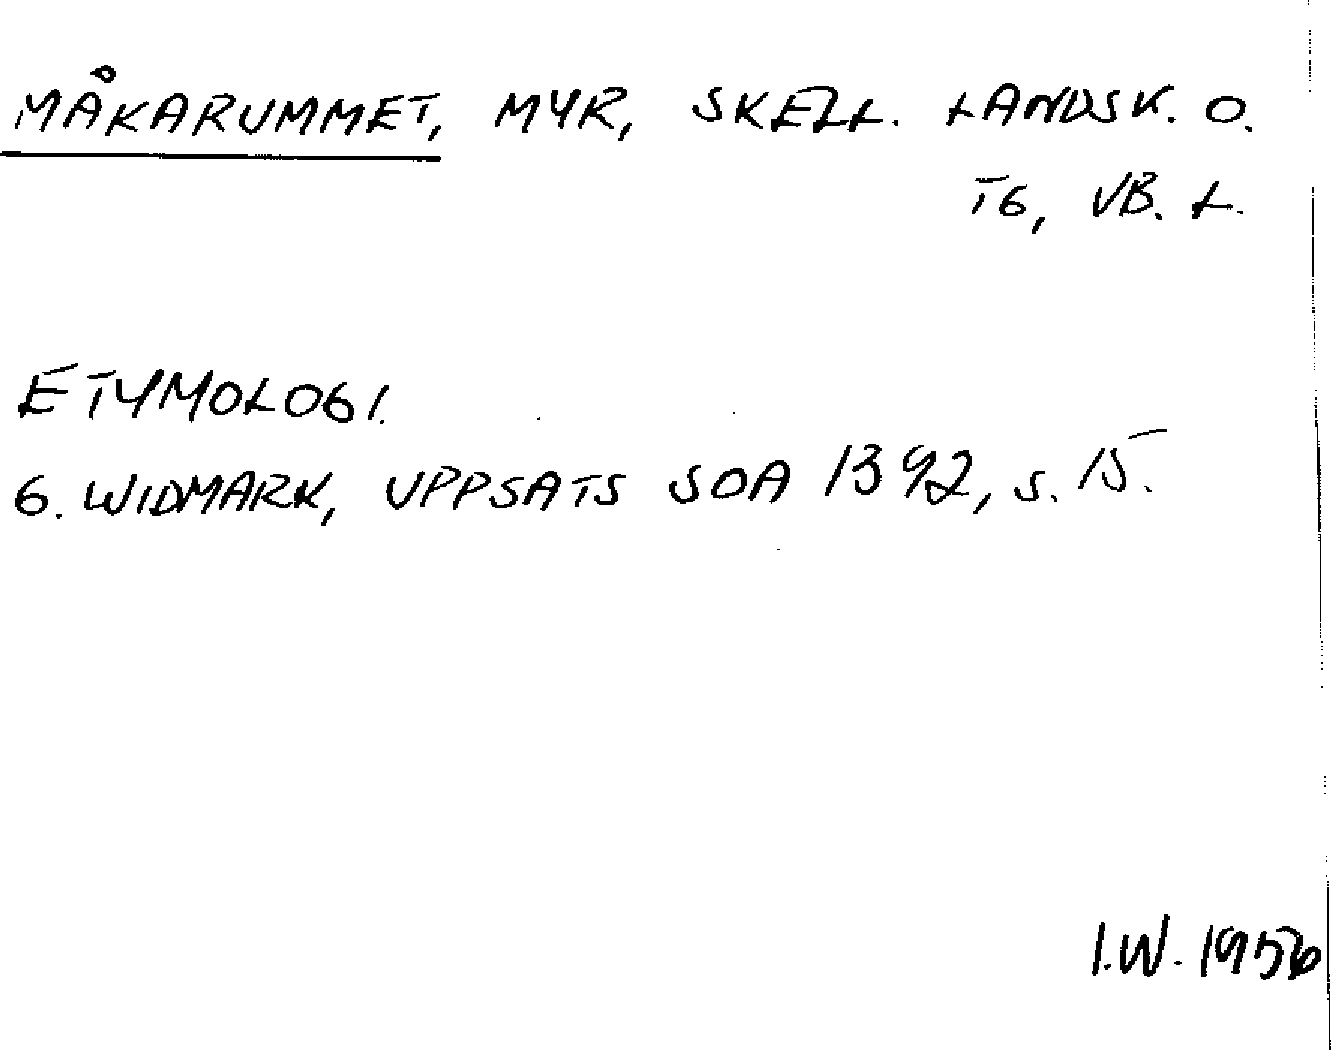 MÅKARUMMET, MYR, SKELL. LANDSK. O.
TG, VB. L.
ETYMOLOGI.
G. WIDMARK, UPPSATS SOA 1392, S. 15.
I.W. 1956